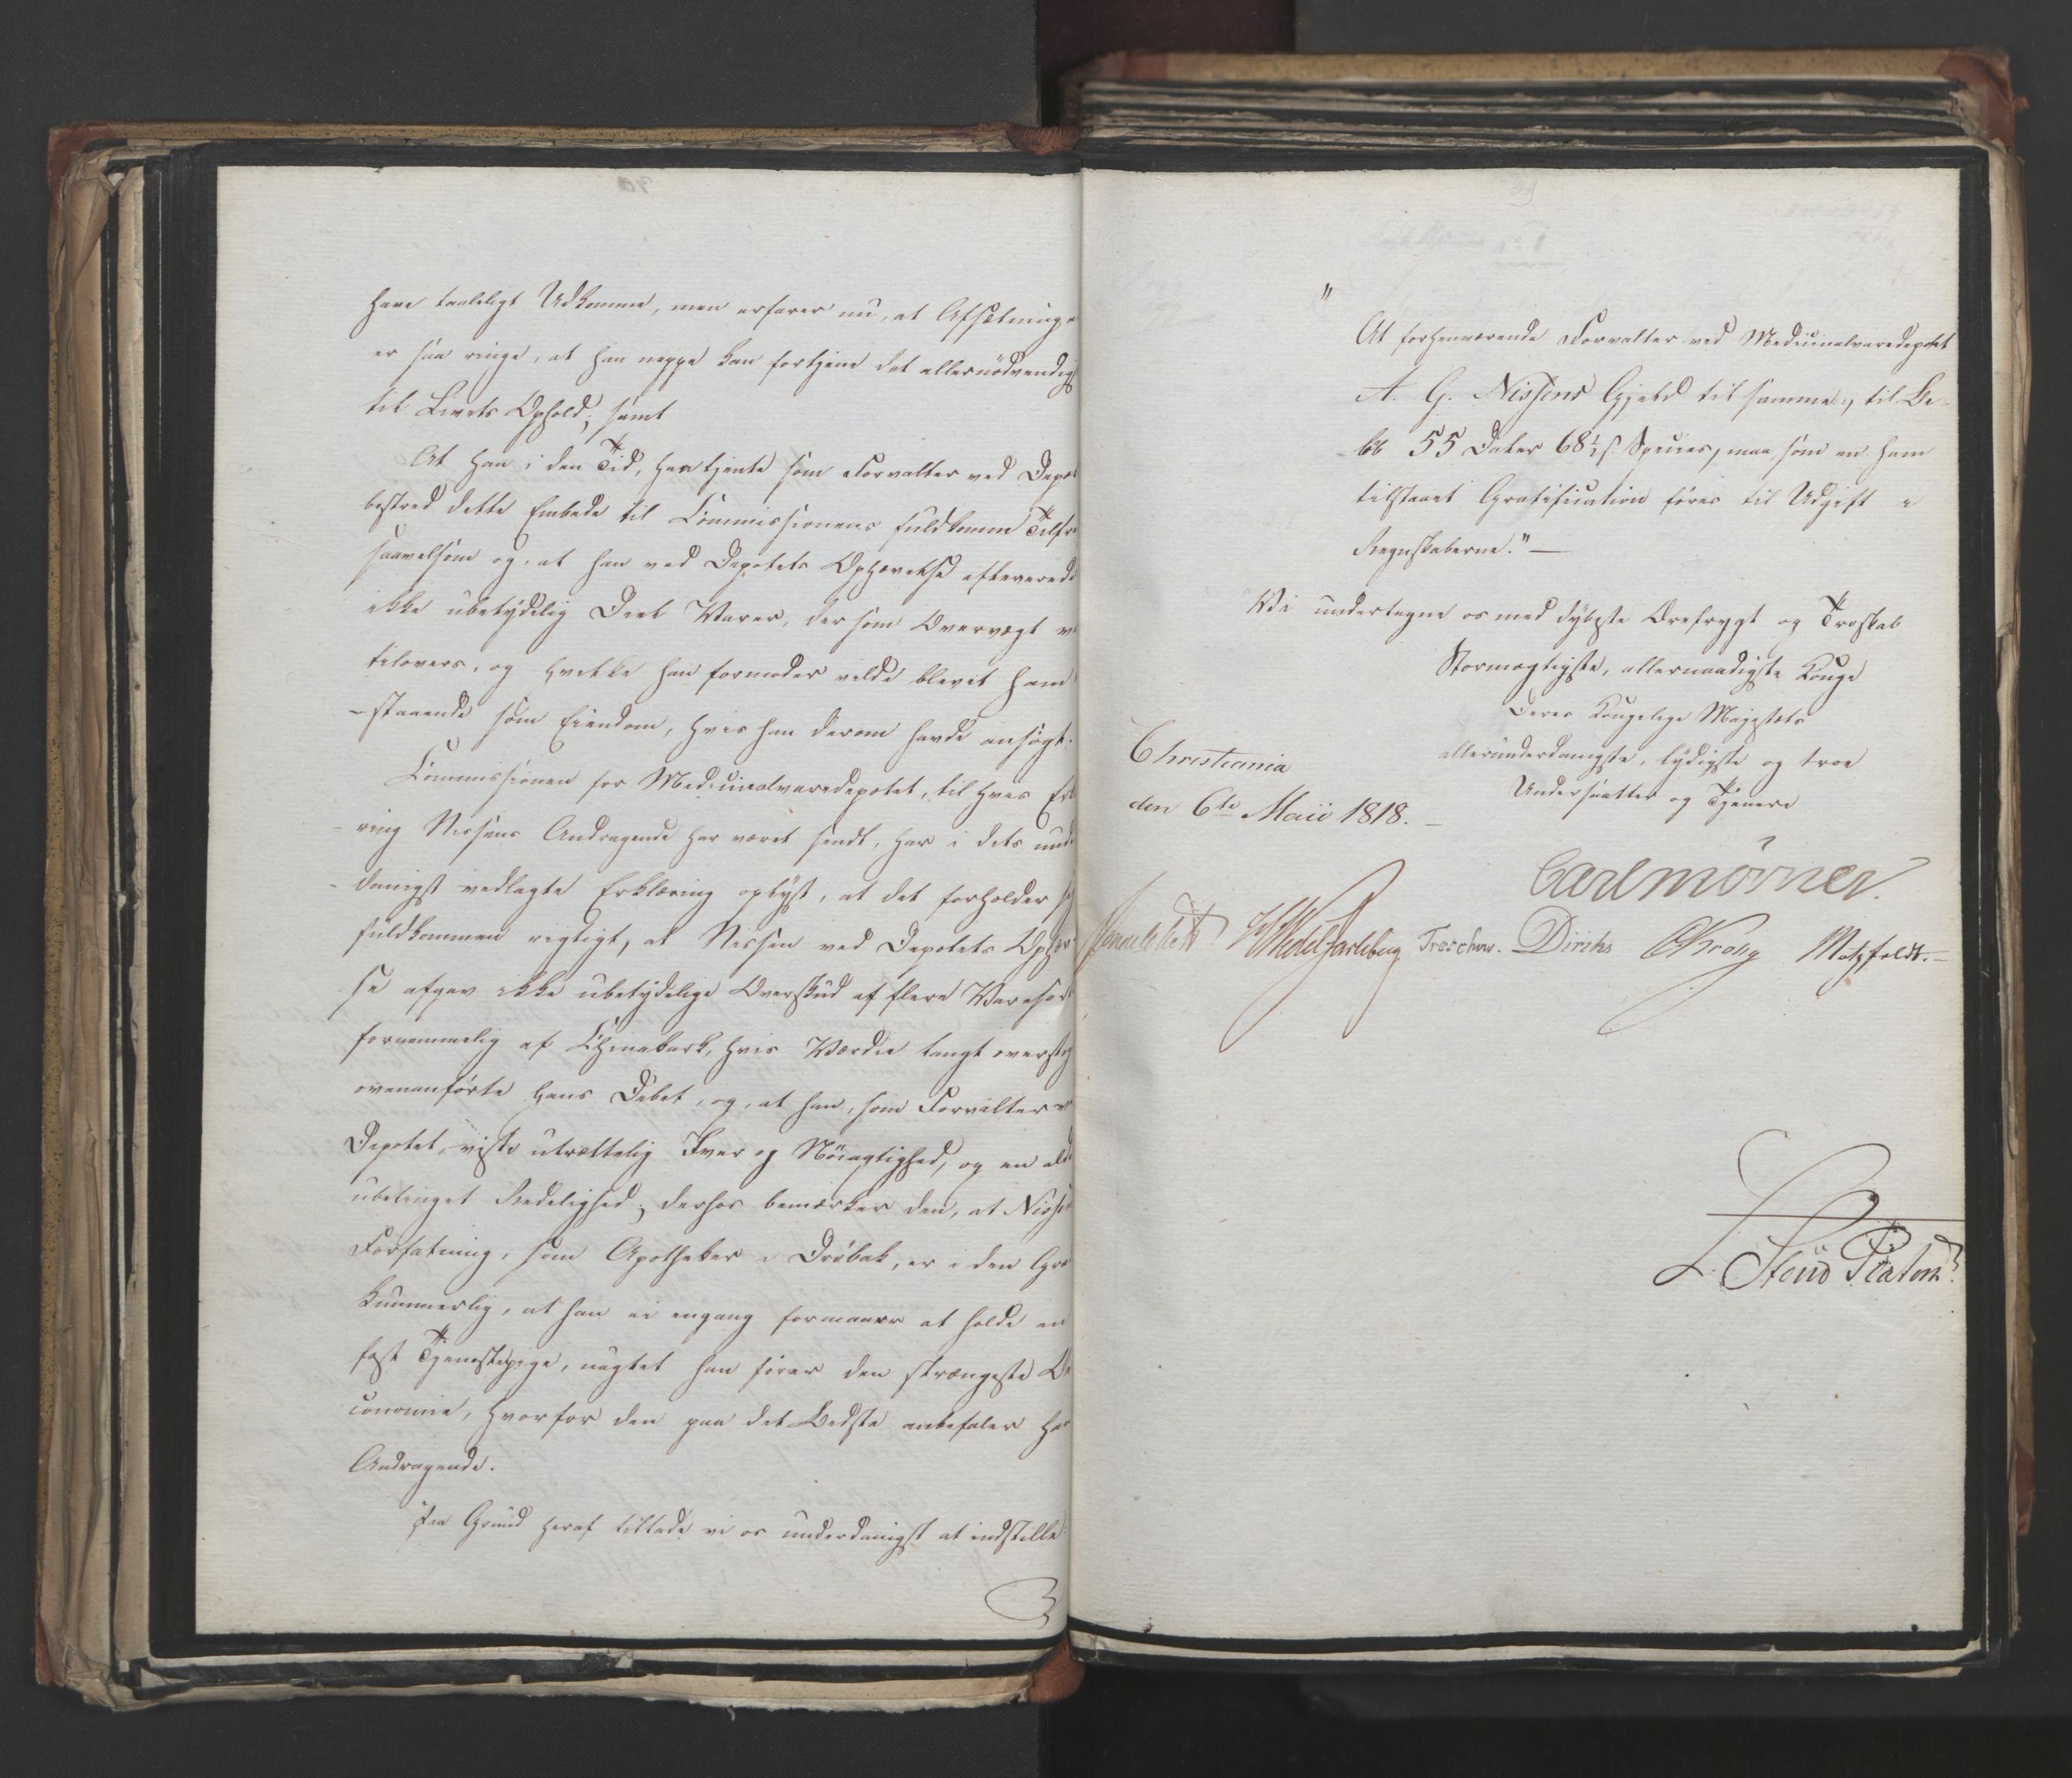 have taaleligt Udkomme, men erfarer nu, at Afsætninge
er saa ringe, at han neppe kan fortjene det allernødvendigs
til Livets Ophold; samt
At han i den Tid, han tjente som Forvalter ved Depot
bestred dette Embede til Commissionens fuldkomne Tilfr
saavelsom og, at han ved Depotets Ophævelse efleverede
ikke ubetydelig Deel Varer, der som Overvægt v
tilovers, og hvilke han formoder vilde blevet ham
-staaende som Eiendom, hvis han derom havde ansøgt.
Commissionen for Medicinalvaredepotet, til hvis Erk
-ring Nissens Andragende har været sendt, har i dets unde
-danigst vedlagte Erklæring oplyst, at det forholder si
fuldkommen rigtigt, at Nissen ved Depotets Ophæv
-se afgav ikke ubetydelige Overskud af flere Varesor
fornemmelig af Chinabark, hvis Værdie langt overstig
ovenanførte hans Debet, og, at han, som Forvalter v
Depotet, viste utrættelig Iver og Nöiagtighed, og en alde
ubetinget Redelighed; derhos bemærker den, at Nisse
Forfatning, som Apotheker i Dröbak, er i den Gra
kummerlig, at han ei engang formaaer at holde en
fast Tjenestepige, uagtet han fører den strængeste O
conomie, hvorfor den paa det Bedste anbefaler ha
Andragende.
Paa Grund heraf tillade vi os underdanigst at indstille:
"
At forhenværende Forvalter ved Medicinalvaredepotet
A. G. Nissens Gjeld til samme, til Be-
-løb 55 Daler 68½ s Species, maa som en ham
tilstaaet Gratification føres til Udgift i
Regnskaberne." —
Vi undertegne os med dybeste Ærefrygt og Troskab
Stormægtigste, allernaadigste Konge
Deres Kongelige Majestæts
allerunderdanigste, lydigste og troe
Undersaatter og Tjenere
Christiania
den 6te Maii 1818. —
Carl Mörner.
Sommerfeldt HWedel Jarlsberg Treschow. Diriks CKrohg Motzfeldt. —
L. Stoud Platou